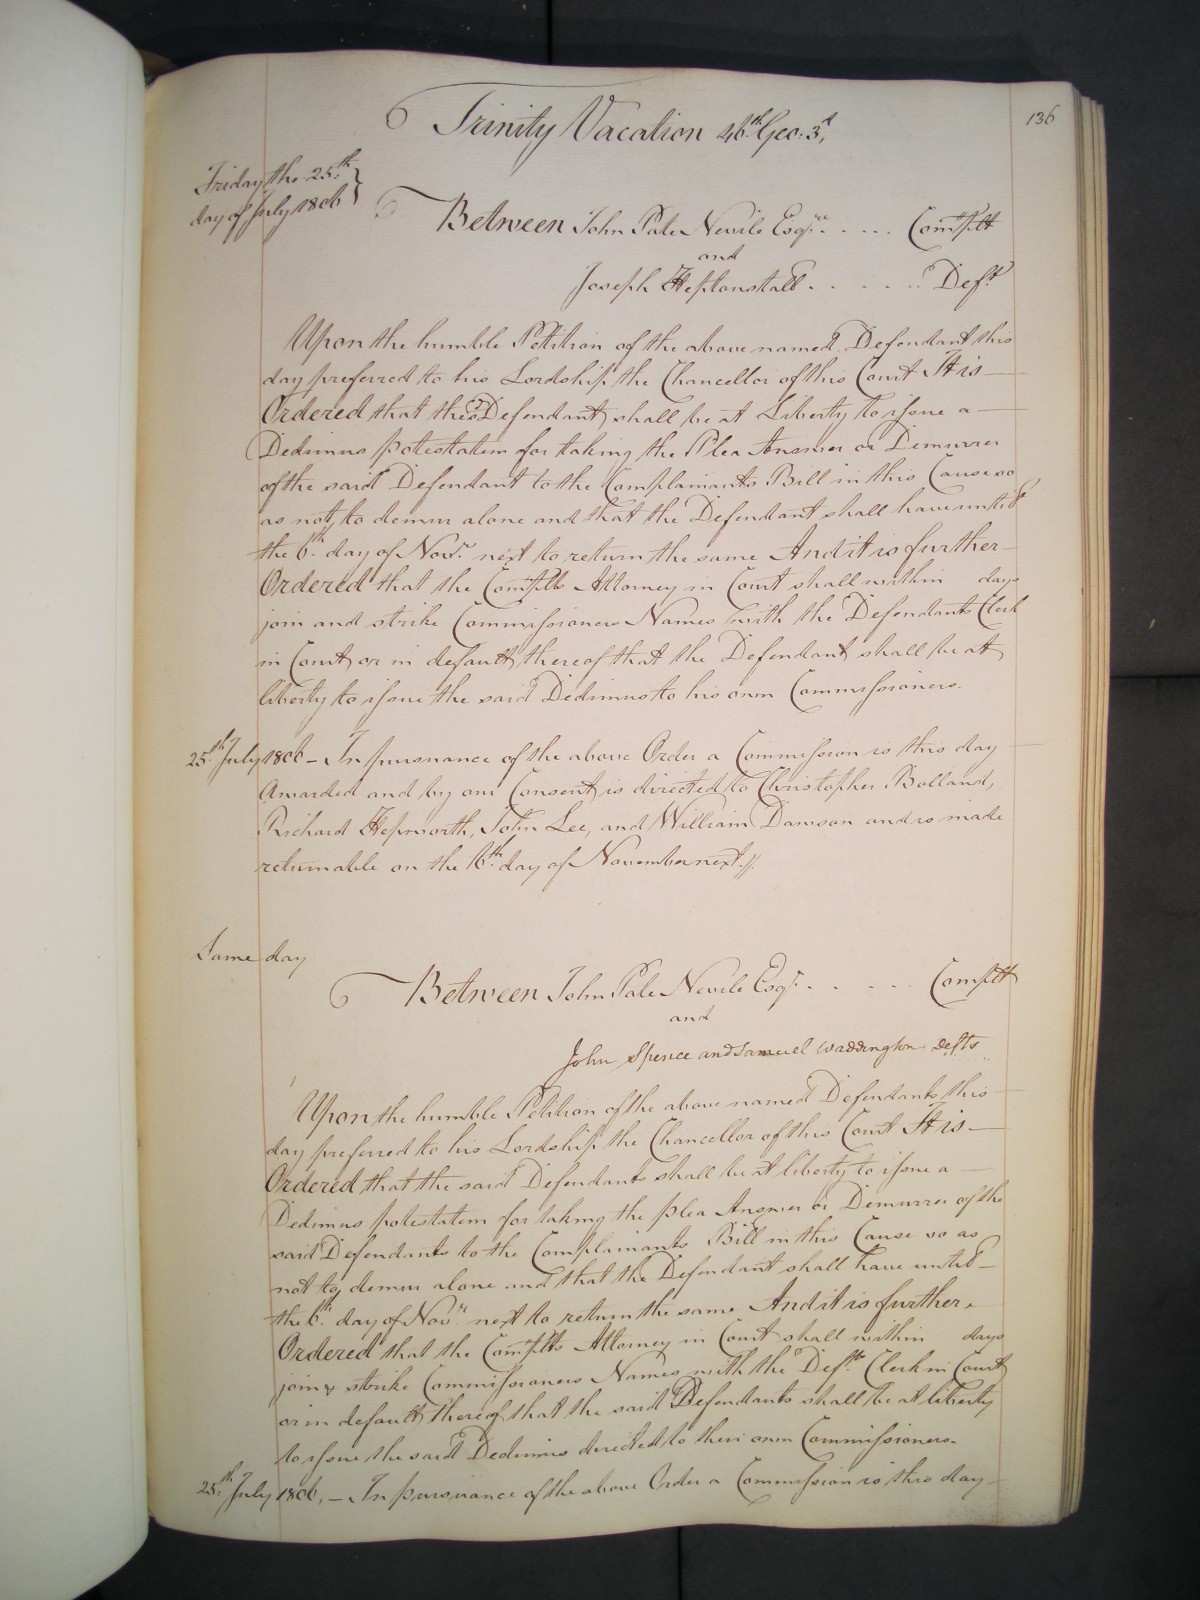 136
Trinity Vacation 46th Geo: 3d,
Friday the 25th
day of July 1806
Between John Pate Nevile Esqre. . . . . Complt
and
Joseph Heptonstall . . . . . . Deft
Upon the humble Petition of the above named Defendant this
day preferred to his Lordship the Chancellor of this Court It is
Ordered that the sd Defendant shall be at Liberty to issue a
Dedimus potestatem for taking the Plea Answer or Demurrer
of the said Defendant to the Complainants Bill in this Cause so
as not to demur alone and that the Defendant shall have until
the 6th day of Novr. next to return the same And it is further
Ordered that the Complts Attorney in Court shall within days
join and strike Commissioners Names with the Defendants Clerk
in Court or in default thereof that the Defendant shall be at
liberty to issue the said Dedimus to his own Commissioners.
25th July 1806 – In pursuance of the above Order a Commission is this day
Awarded and by our Consent is directed to Christopher Bolland,
Richard Hepworth, John Lee, and William Dawson and is made
returnable on the 6th day of November next.//
Same day
Between John Pate Nevile Esqr. . . . . . Complt
and
John Spence and Samuel Waddington Defts
Upon the humble Petition of the above named Defendants this
day preferred to his Lordship the Chancellor of this Court It is
Ordered that the said Defendants shall be at liberty to issue a
Dedimus potestatem for taking the plea Answer or Demurrer of the
said Defendants to the Complainants Bill in this Cause so as
not to demur alone and that the Defendant shall have until
the 6th day of Novr. next to return the same And it is further
Ordered that the Complts Attorney in Court shall within days
join & strike Commissioners Names with the Defts. Clerk in Court
or in default thereof that the said Defendants shall be at liberty
to issue the said Dedimus directed to their own Commissioners.
25th July 1806. – In pursuance of the above Order a Commission is this day